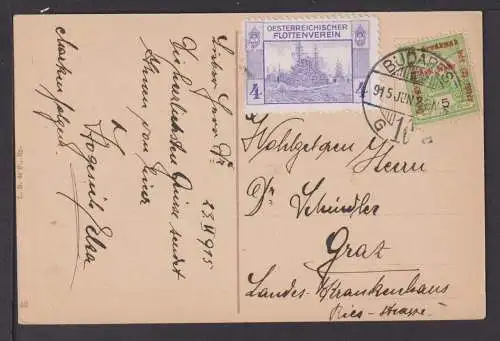 OESTERREICHISCHER
FLOTTENVEREIN
4 4
BUDAPEST
915 JUN 2
Lieber Herr Dr
Die herzlichsten Grüsse sendet
Ihnen von hier
23.VI 915
Marken folgen.
Elsa
Wohlgeboren Herrn
Dr Schindler
Graz
Landes-Krankenhaus
Ries-Strasse